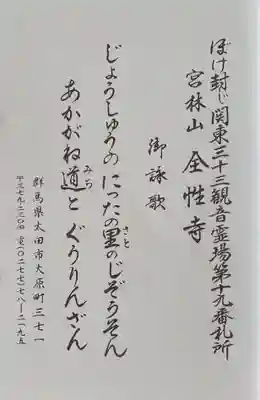 ぼけ封じ関東三十三観音霊場第十九番札所
宮林山 全性寺
御詠歌
じょうしゅうの にったの里のじぞうそん
さと
あかがね道と ぐうりんざん
みち
群馬県太田市大原町三七一
〒三七九ー二三〇四 電(〇二七七)七八ー二一九五